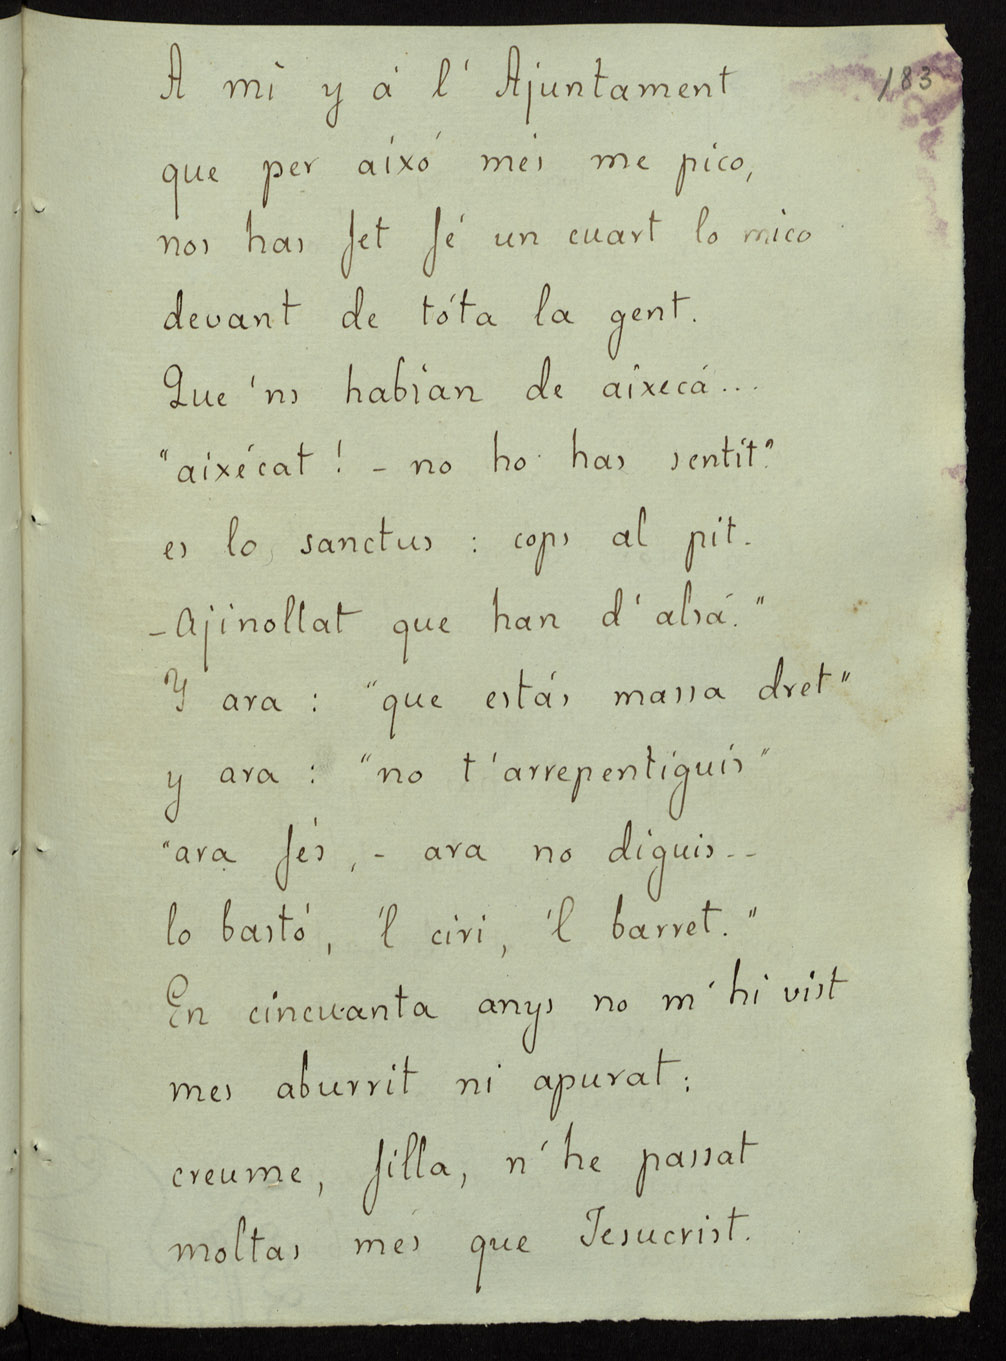 183
A mi y á l' Ajuntament
que per aixó més me pico,
nos has fet fé un cuart lo mico
devant de tóta la gent.
Que 'ns habían de aixecá...
"aixécat! - no ho has sentit?
es lo sanctus: cops al pit.
- Ajinollat que han d'alsá."
Y ara: "que estás massa dret"
y ara: "no t'arrepentiguis"
"ara fés, - ara no diguis--
lo bastó, 'l ciri, 'l barret."
En cincuanta anys no m'hi vist
mes aburrit ni apurat:
creume, filla, n'he passat
moltas més que Jesucrist.